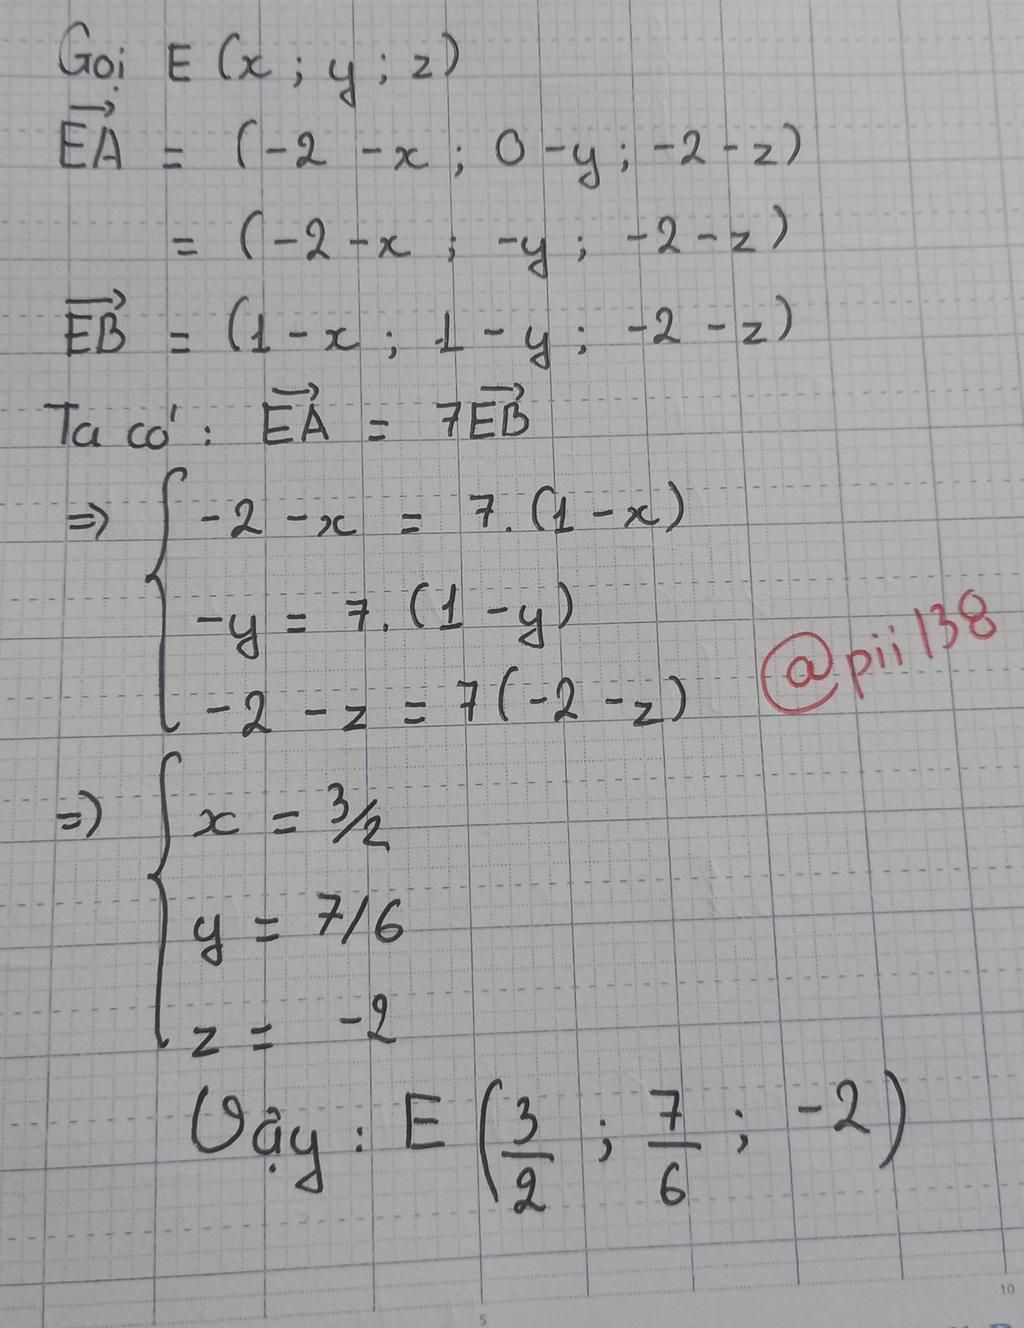 Gọi E (x ; y ; z)
EA = (-2 - x ; 0 - y ; -2 - z)
= (-2 - x ; -y ; -2 - z)
EB = (1 - x ; 1 - y ; -2 - z)
Ta có : EA = 7EB
=> { -2 - x = 7. (1 - x)
-y = 7. (1 - y)
-2 - z = 7(-2 - z)
@pii138
=> { x = 3/2
y = 7/6
z = -2
Vậy : E (3/2 ; 7/6 ; -2)
5
10